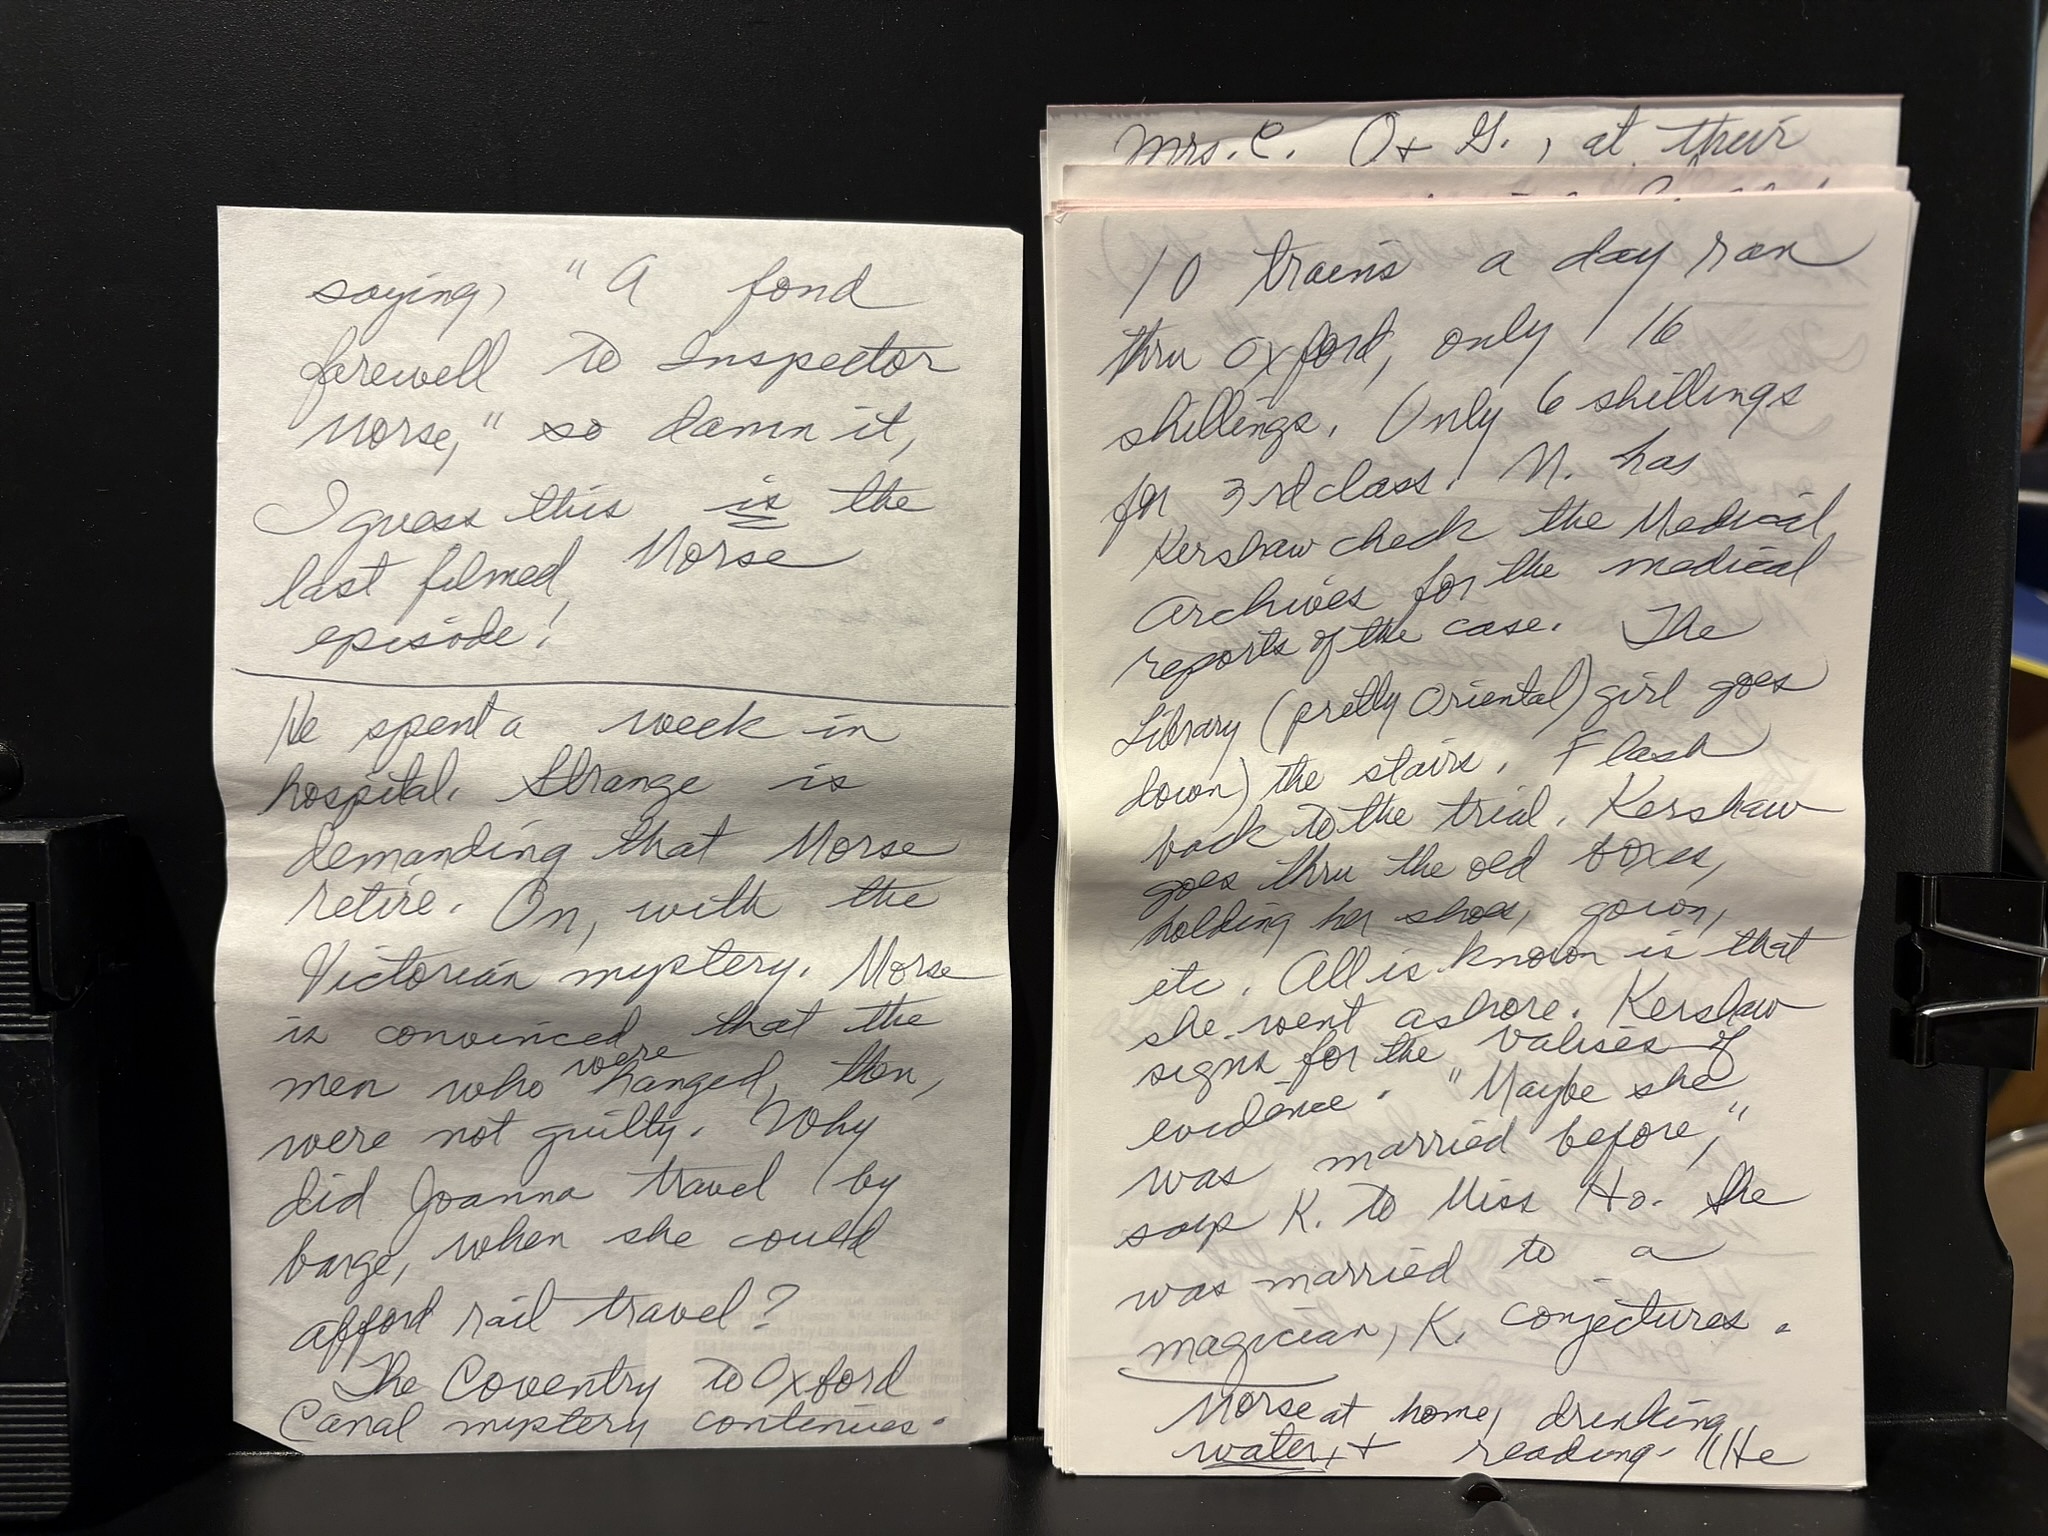 saying, "A fond
farewell to Inspector
Morse," so damn it,
I guess this is the
last filmed Morse
episode!
He spent a week in
hospital. Strange is
demanding that Morse
retire. On, with the
Victorian mystery. Morse
is convinced that the
men who were hanged, then,
were not guilty. Why
did Joanna travel by
barge, when she could
afford rail travel?
The Coventry to Oxford
Canal mystery continues.
Mrs. C. O+ G., at their
10 trains a day ran
thru Oxford, only 16
shillings. Only 6 shillings
for 3rd class. M. has
Kershaw check the Medical
Archives for the medical
reports of the case. The
Library (pretty Oriental) girl goes
down) the stairs. Flash
back to the trial. Kershaw
goes thru the old boxes,
holding her shoes, gown,
etc. All is known is that
she went ashore. Kershaw
signs for the valises of
evidence. "Maybe she
was married before,"
says K. to Miss Ho. She
was married to a
magician, K. conjectures.
Morse at home, drinking
water, + reading. "He